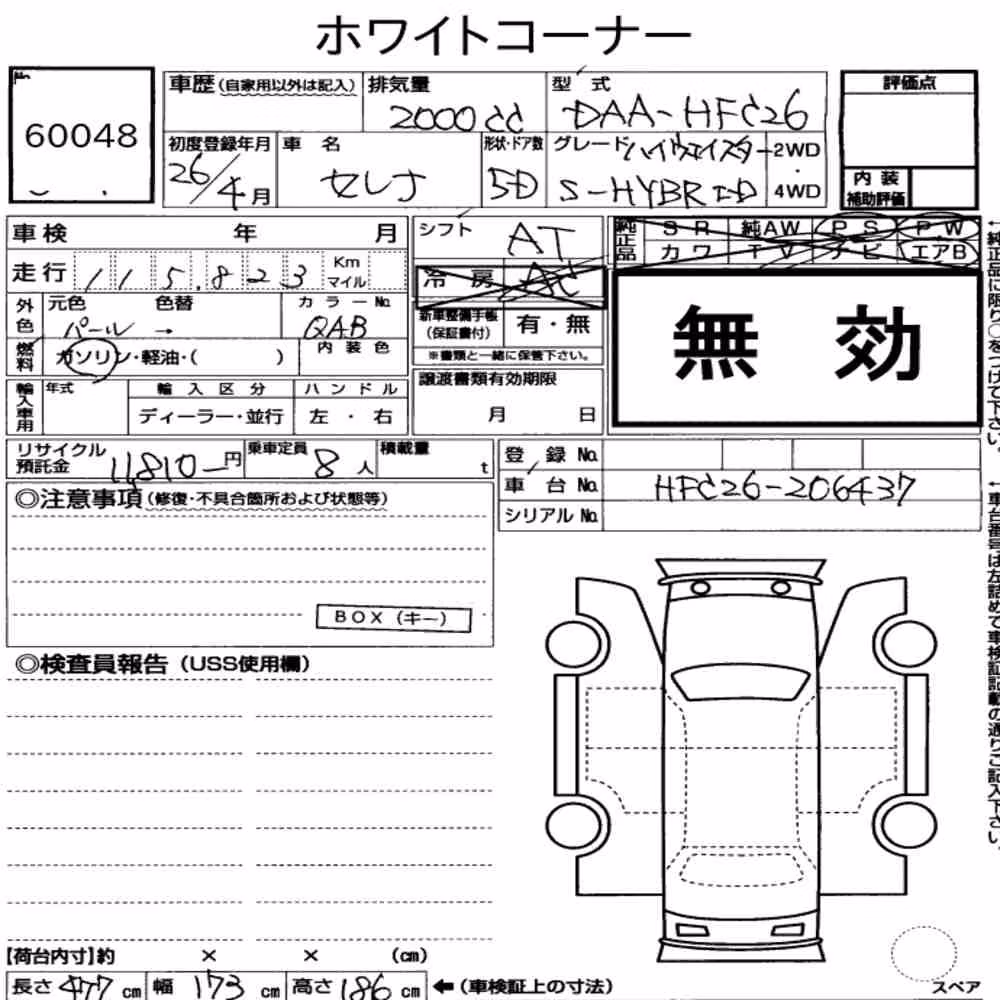 ホワイトコーナー
No. 60048
車歴(自家用以外は記入) 排気量 2000cc 型式 DAA-HFC26
初度登録年月 26/4月 車名 セレナ 形状・ドア数 5D グレード ハイウェイスター S-HYBRID 2WD 4WD
評価点
内装補助評価
車検 年 月
シフト AT
純正品 SR 純AW PS PW
カワ TV ナビ エアB
走行 115,823 Km マイル
冷房 AC
外色 元色 パール → 色替 カラーNo. QAB
新車整備手帳(保証書付) 有・無
※書類と一緒に保管下さい。
無効
燃料 ガソリン・軽油・( ) 内装色
輸入車用 年式 輸入区分 ハンドル
ディーラー・並行 左・右
譲渡書類有効期限
月 日
リサイクル預託金 11,810-円 乗車定員 8人 積載量 t
登録No.
車台No. HFC26-206437
シリアルNo.
◎注意事項(修復・不具合箇所および状態等)
BOX(キー)
◎検査員報告(USS使用欄)
【荷台内寸】約 × × (cm)
長さ 477cm 幅 173cm 高さ 186cm ←(車検証上の寸法)
スペア
←純正品に限り○をつけて下さい。
←車台番号は左詰めで車検証記載の通りご記入下さい。